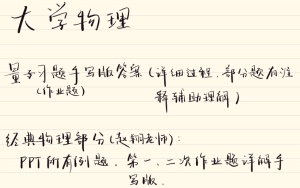 大学物理
量子习题手写版答案(详细过程.部分题有注
(作业题) 释辅助理解)
经典物理部分(赵翔老师):
PPT所有例题.第一、二次作业题详解手
写版.